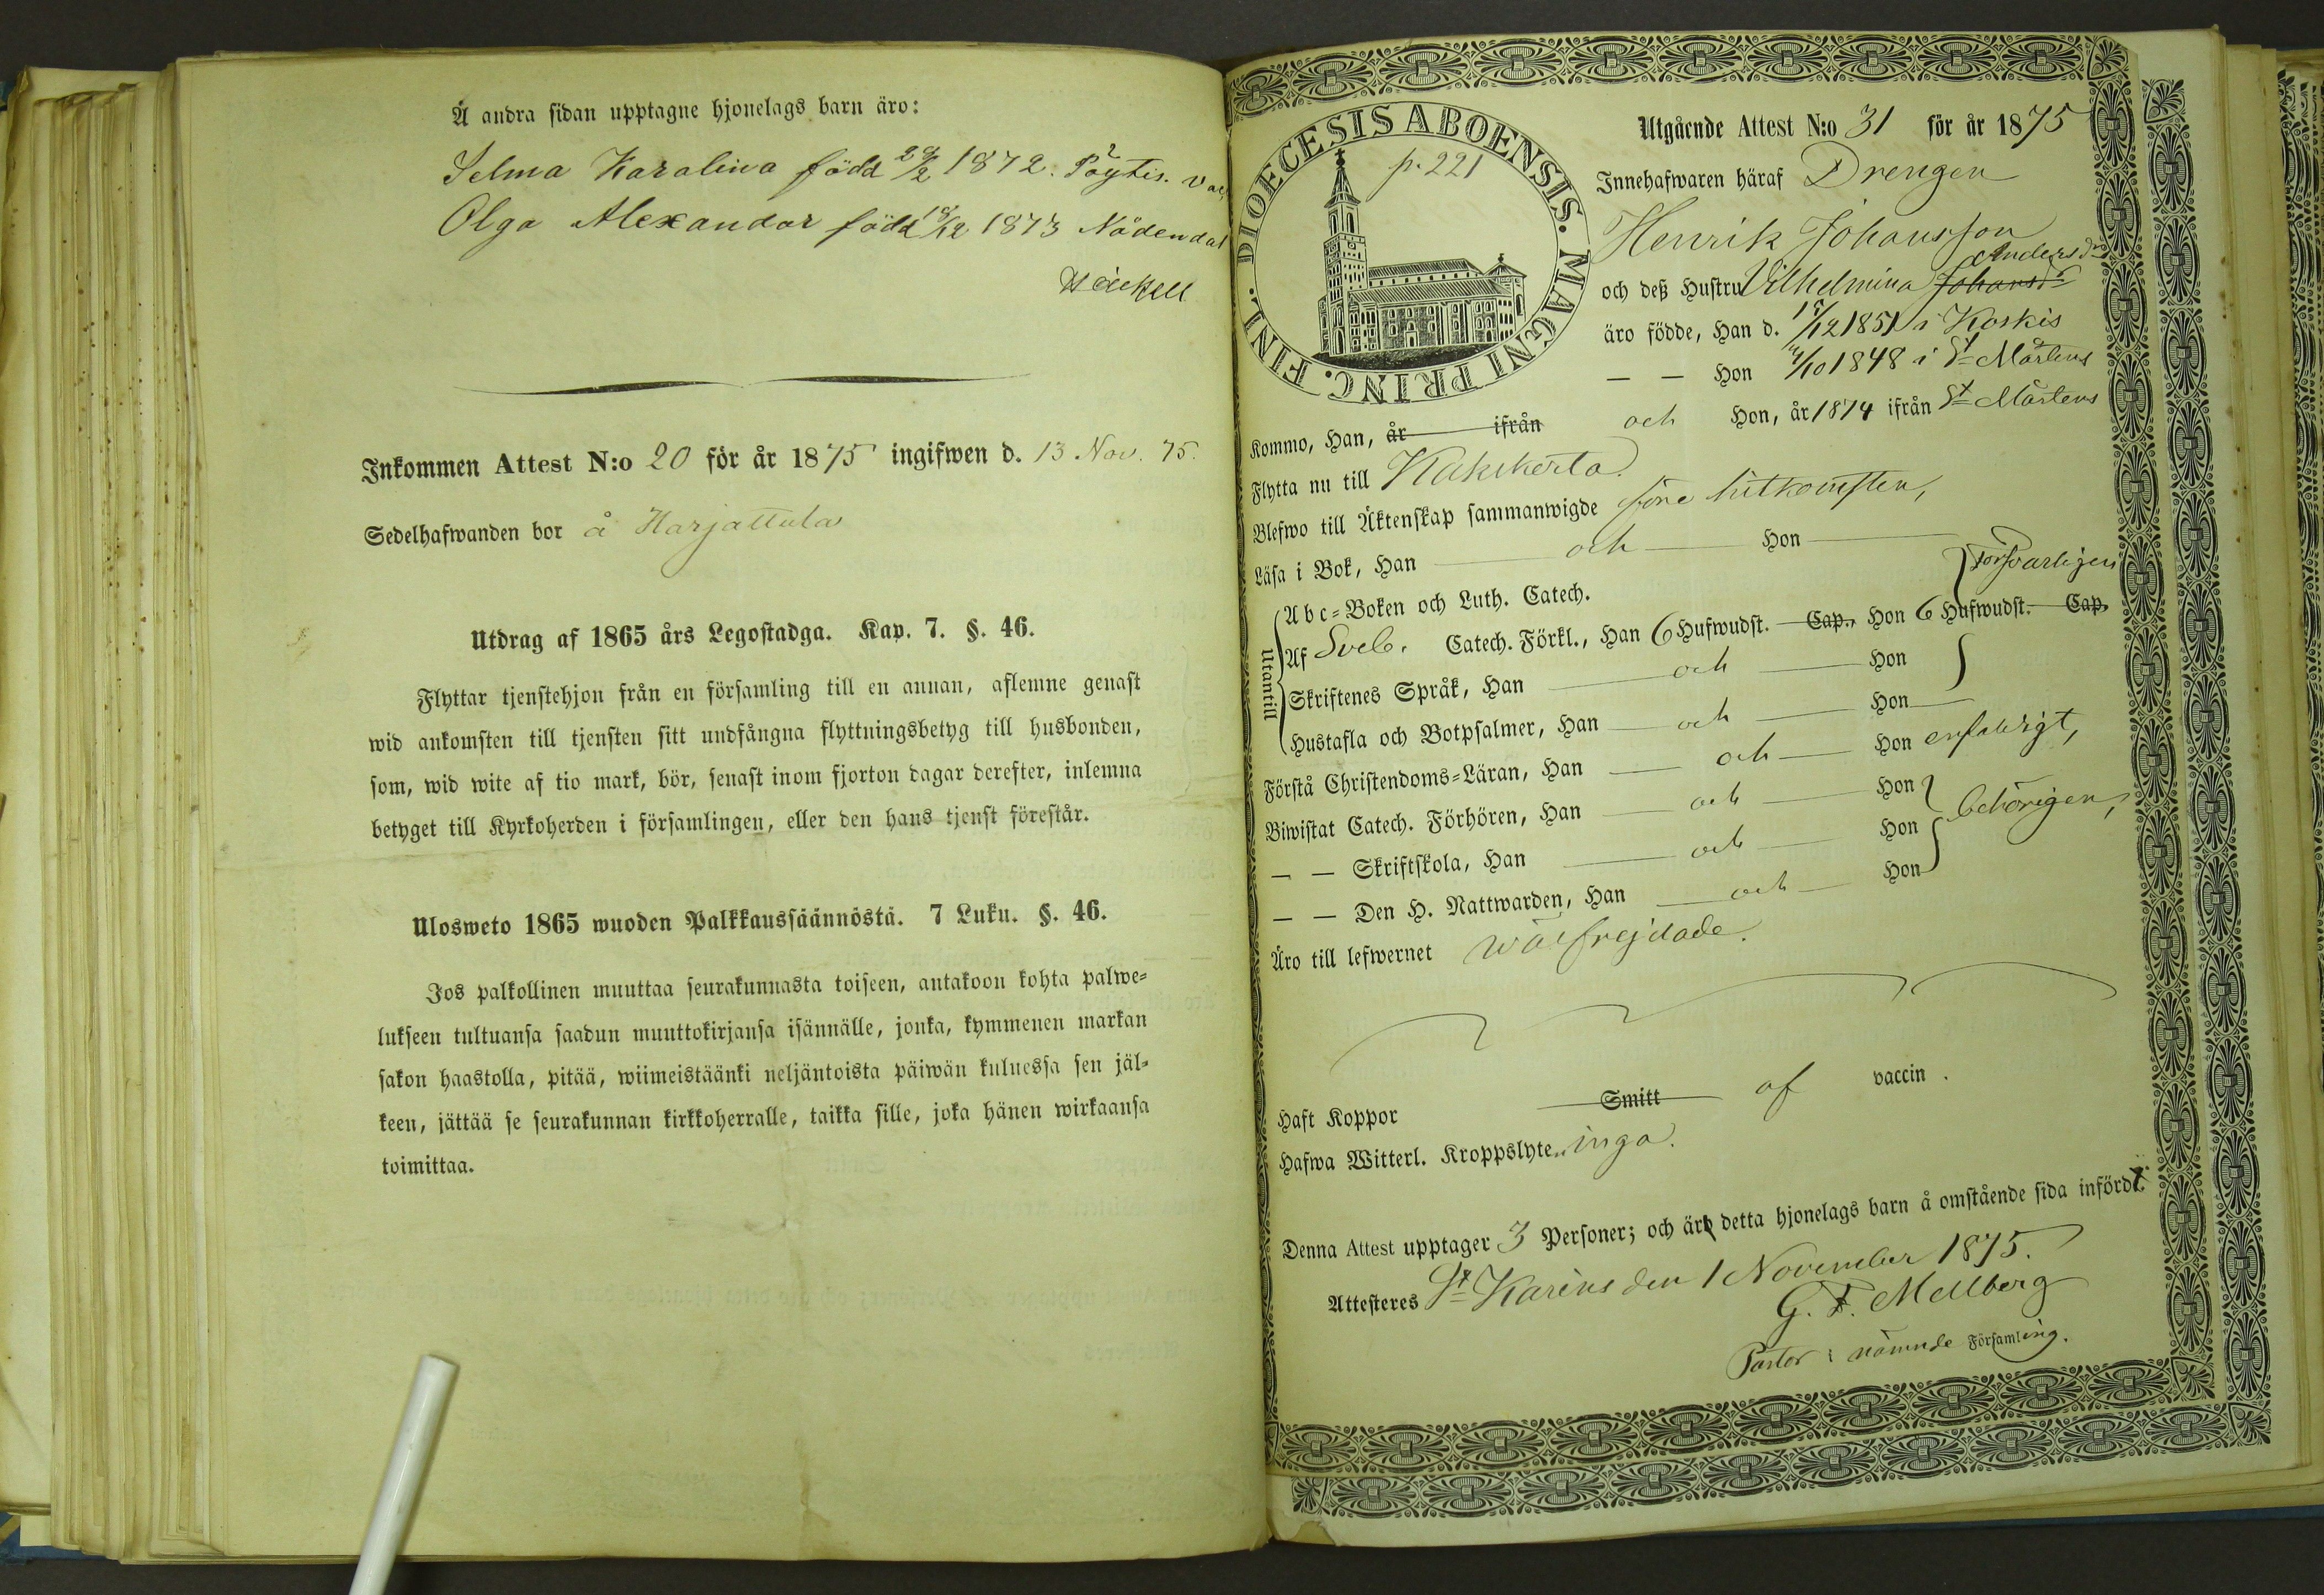 Å andra sidan upptagne hjonelags barn äro:
Selma Karolina född 29/2 1872. Pöytis. vac
Olga Alexandar född 18/12 1873 Nådendal
Inkommen Attest N:o 20 för år 1875 ingifwen d. 13 Nov. 75.
Sedelhafwanden bor å Harjattula
Utdrag af 1865 års Legostadga. Kap. 7. §. 46.
Flyttar tjenstehjon från en församling till en annan, aflemne genast
wid ankomsten till tjensten sitt undfångna flyttningsbetyg till husbonden,
som, wid wite af tio mark, bör, senast inom fjorton dagar derefter, inlemna
betyget till Kyrkoherden i församlingen, eller den hans tjenst förestår.
Ulosweto 1865 wuoden Palkkaussäännöstä. 7 Luku. §. 46.
Jos palkollinen muuttaa seurakunnasta toiseen, antakoon kohta palwe-
lukseen tultuansa saadun muuttokirjansa isännälle, jonka, kymmenen markan
sakon haastolla, pitää, wiimeistäänki neljäntoista päiwän kuluessa sen jäl-
keen, jättää se seurakunnan kirkkoherralle, taikka sille, joka hänen wirkaansa
toimittaa.
DIOECESIS ABOENSIS. MAGNI PRINC. FINL.
p. 221
Utgående Attest N:o 31 för år 1875
Innehafwaren häraf Drengen
Henrik Johansson
Andersd:r
och deß Hustru Vilhelmina Johansd:r
äro födde, Han d. 15/12 1851 i Koskis
— — Hon 4/10 1848 i S:t Mårtens
Kommo, Han, år ifrån och Hon, år 1874 ifrån S:t Mårtens
Flytta nu till Kakskerta.
Blefwo till Äktenskap sammanwigde före hitkomsten,
Läsa i Bok, Han och Hon
försvarligen
Utantill
Abc-Boken och Luth. Catech.
Af Sveb. Catech. Förkl., Han 6 Hufwudst. Cap., Hon 6 Hufwudst. Cap.
Skriftenes Språk, Han och Hon
Hustafla och Botpsalmer, Han och Hon
Förstå Christendoms-Läran, Han och Hon enfaldigt,
Biwistat Catech. Förhören, Han och Hon
behörigen,
— — Skriftskola, Han och Hon
— — Den H. Nattwarden, Han och Hon
Äro till lefwernet wälfrejdade.
Haft Koppor Smitt af vaccin.
Hafwa Witterl. Kroppslyte inga.
Denna Attest upptager 3 Personer; och äro detta hjonelags barn å omstående sida införd:
Attesteres S:t Karins den 1 November 1875.
G. F. Mellberg
Pastor i nämnde Församling.